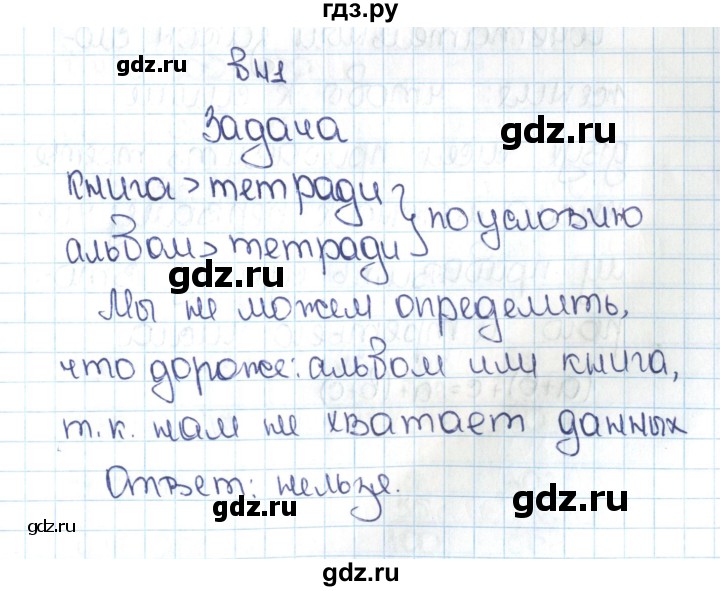 гдз.ру
gdz.ru
В№1
Задача
gdz.ru
книга > тетради
альбом > тетради } по условию
gdz.ru
Мы не можем определить,
что дороже: альбом или книга,
т.к. нам не хватает данных
Ответ: нельзя.
gdz.ru
gdz.ru
gdz.ru
gdz.ru